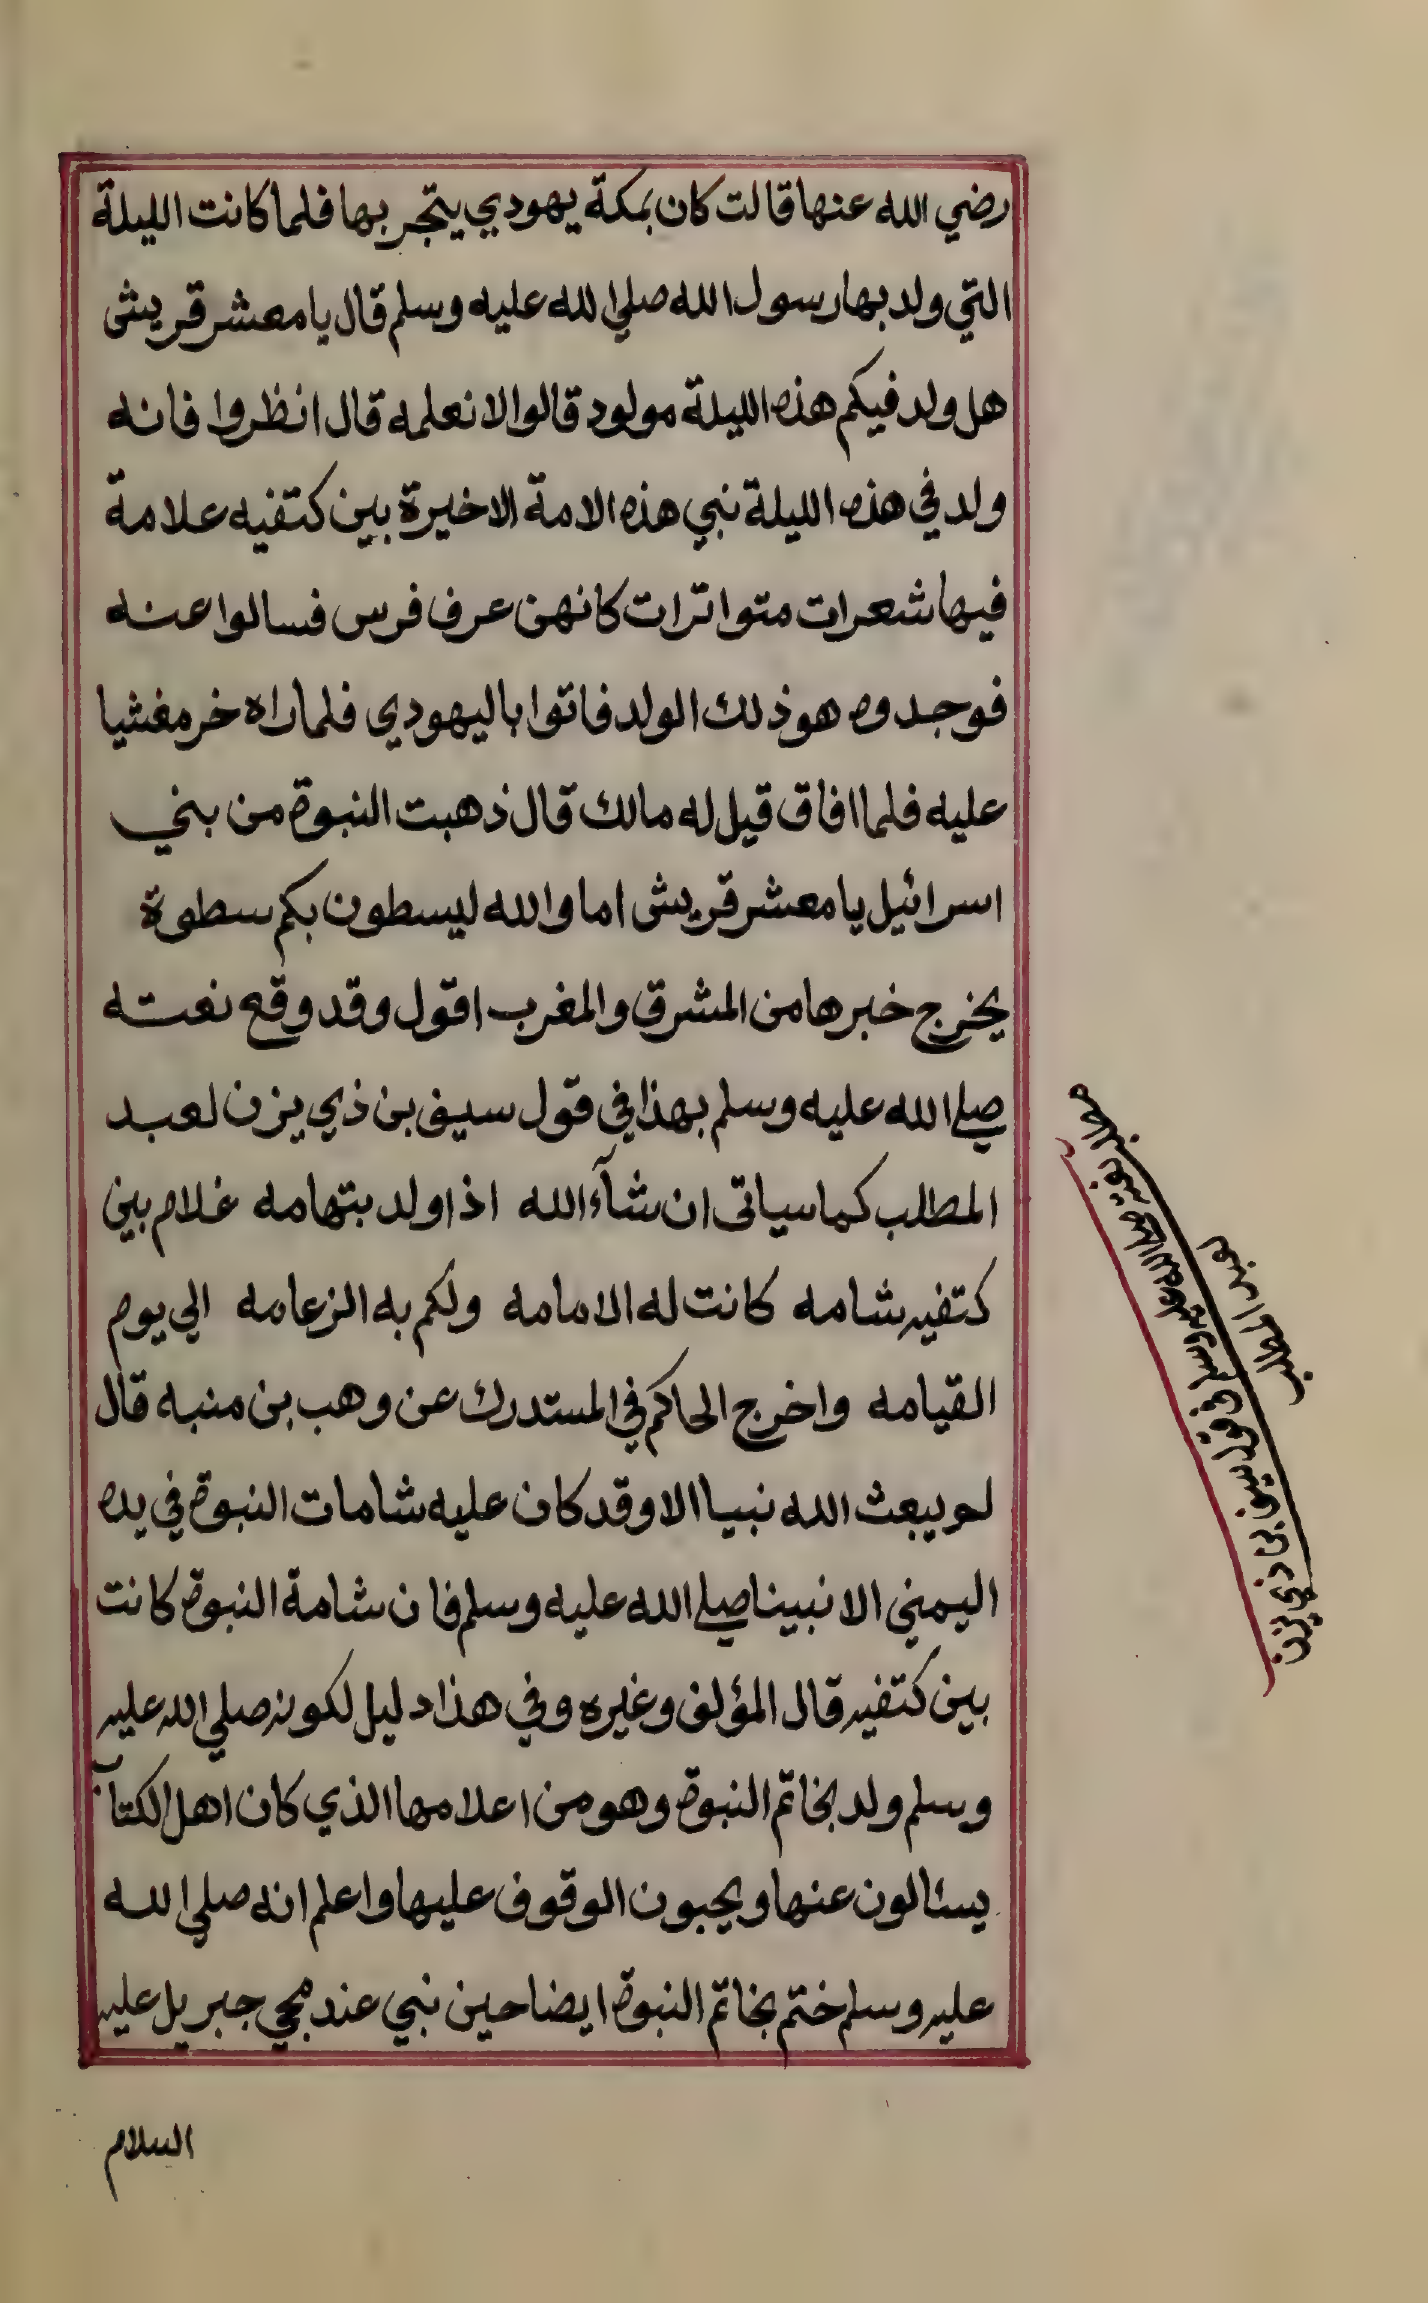 رضي الله عنها قالت كان بمكة يهودي يتجر بها فلما كانت الليلة
التي ولد بها رسول الله صلي الله عليه وسلم قال يا معشر قريش
هل ولد فيكم هذه الليلة مولود قالوا لا نعلمه قال انظروا فانه
ولد في هذه الليلة نبي هذه الامة الاخيرة بين كتفيه علامة
فيها شعرات متواترات كانهن عرف فرس فسالوا عنه
فوجدوه هو ذلك الولد فاتوا باليهودي فلما راه خر مغشيا
عليه فلما افاق قيل له مالك قال ذهبت النبوة من بني
اسرائيل يا معشر قريش اما والله ليسطون بكم سطوة
يخرج خبرها من المشرق والمغرب اقول وقد وقع نعته
صلي الله عليه وسلم بهذا في قول سيف بن ذي يزن لعبد
المطلب كما سياتي ان شآء الله اذا ولد بتهامه غلام بين
كتفيه شامه كانت له الامامه ولكم به الزعامه الي يوم
القيامه واخرج الحاكم في المستدرك عن وهب بن منبه قال
لم يبعث الله نبيا الا وقد كان عليه شامات النبوة في يده
اليمني الا نبينا صلي الله عليه وسلم فان شامة النبوة كانت
بين كتفيه قال المؤلف وغيره وفي هذا دليل لكونه صلي الله عليه
وسلم ولد بخاتم النبوة وهو من اعلامها الذي كان اهل الكتاب
يسئالون عنها ويحبون الوقوف عليها واعلم انه صلي الله
عليه وسلم ختم بخاتم النبوة ايضا حين نبي عند مجي جبريل عليه
السلام
مطلب نعته صلي الله عليه وسلم في قول سيف بن ذي يزن
لعبد المطلب